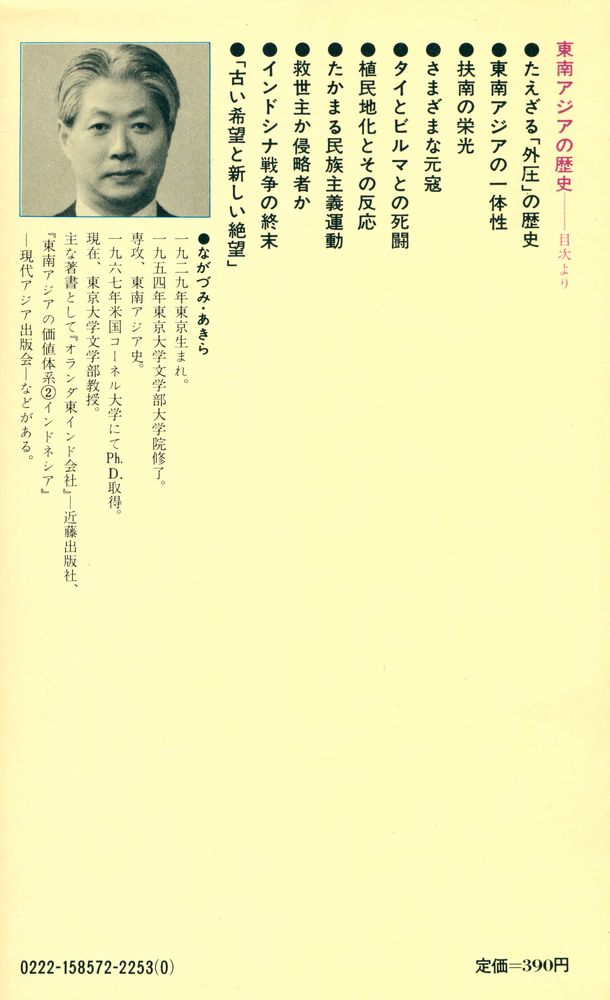 東南アジアの歴史――目次より
●たえざる「外圧」の歴史
●東南アジアの一体性
●扶南の栄光
●さまざまな元寇
●タイとビルマとの死闘
●植民地化とその反応
●たかまる民族主義運動
●救世主か侵略者か
●インドシナ戦争の終末
●「古い希望と新しい絶望」
●ながづみ・あきら
一九二九年東京生まれ。
一九五四年東京大学文学部大学院修了。
専攻、東南アジア史。
一九六七年米国コーネル大学にてPh.D.取得。
現在、東京大学文学部教授。
主な著書として『オランダ東インド会社』―近藤出版社、
『東南アジアの価値体系②インドネシア』
―現代アジア出版会―などがある。
0222-158572-2253(0)
定価=390円